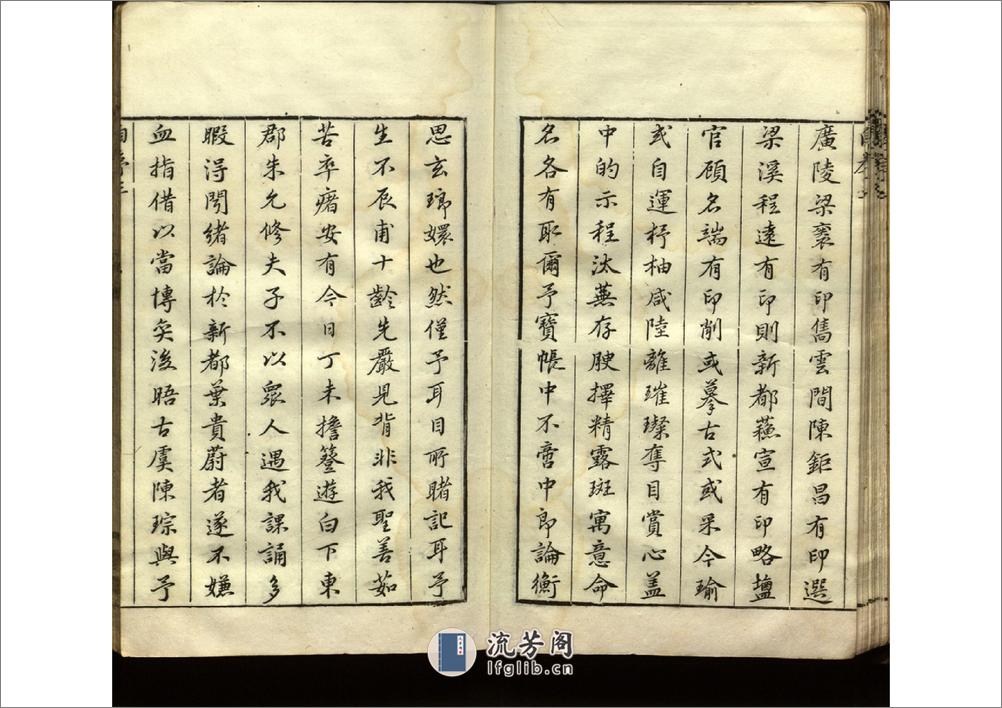 廣陵梁袠有印雋雲間陳鉅昌有印選
梁溪程遠有印則新都蘇宣有印略鹽
官顧名端有印削或摹古式或采今瑜
或自運杼柚咸陸離璀璨奪目賞心盖
中的示程汰蕪存腴擇精露斑寓意命
名各有取爾予寶帳中不啻中郎論衡
思玄瑯嬛也然僅予耳目所睹記耳予
生不辰甫十齡先嚴見背非我聖善茹
苦卒瘏安有今日丁未擔簦遊白下東
郡朱允修夫子不以眾人遇我課誦多
暇淂閱緒論於新都葉貴蔚者遂不嫌
血指借以當博奕後晤古虞陳琮與予
自序三
流芳阁
lfglib.cn